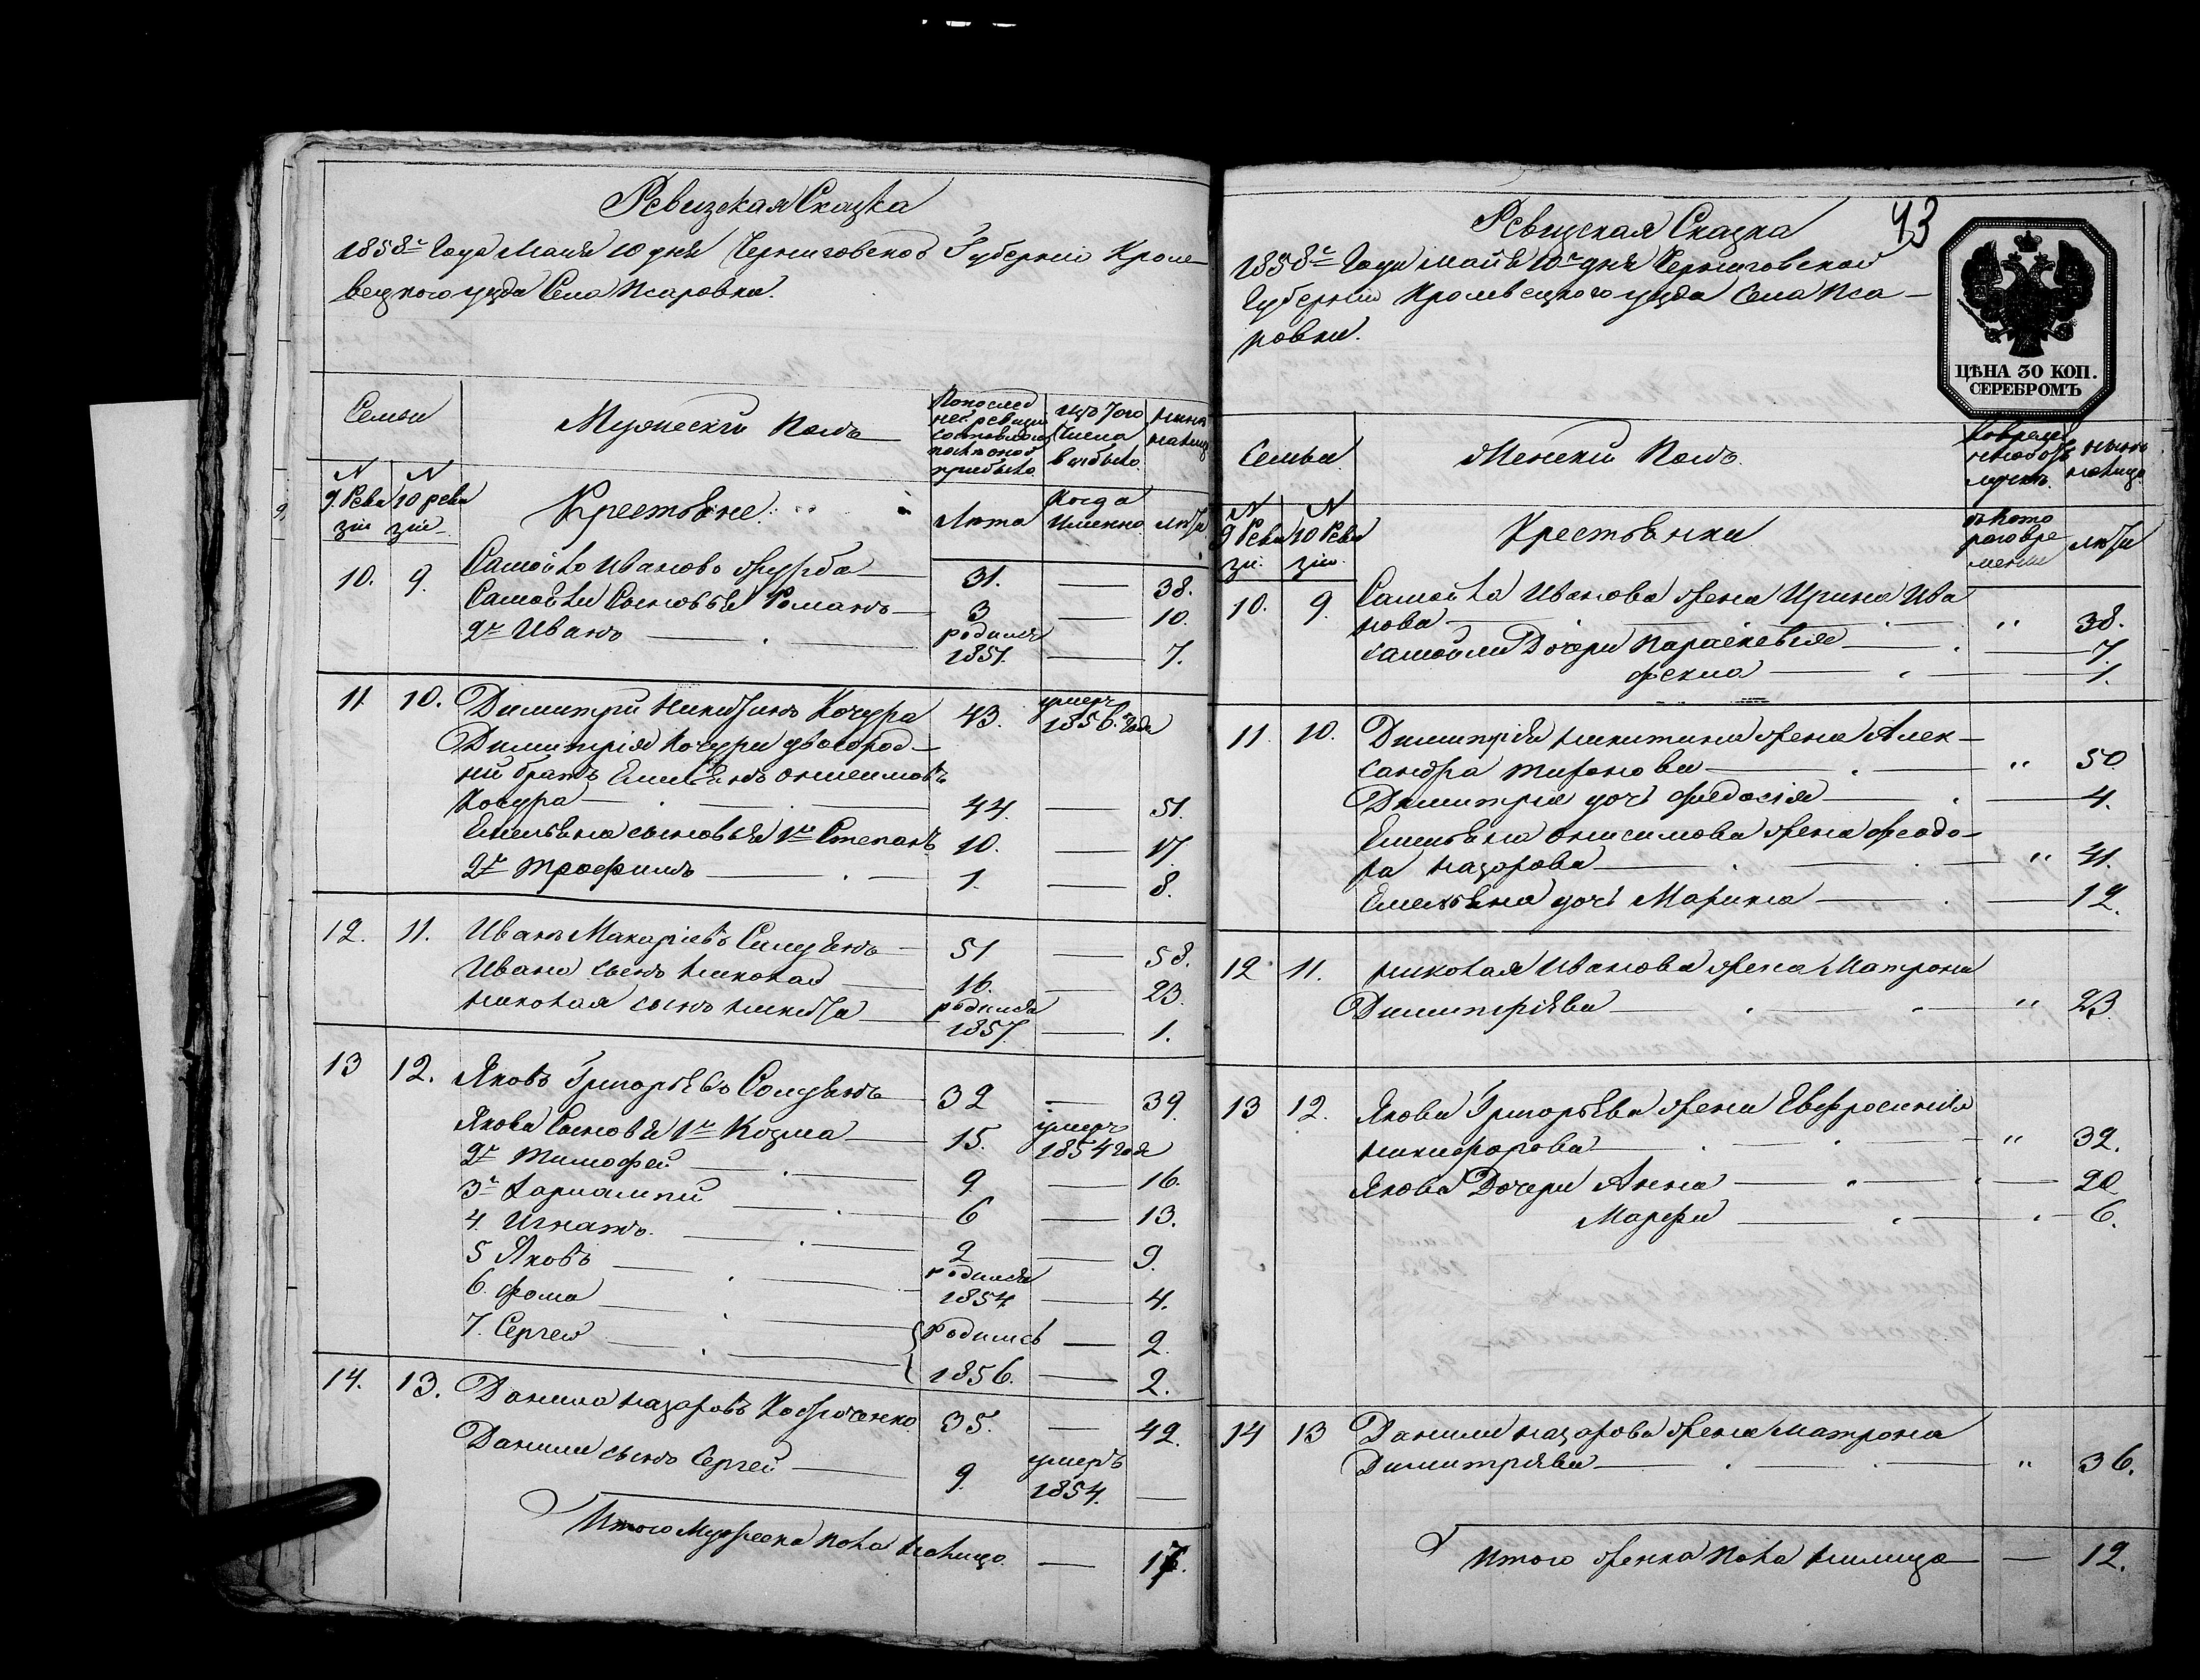 Ревизская Сказка
1858го Года Маія 10 дня Черниговской Губерніи Кроле-
вецкого уезда Села Псаровки.
Семьи
Мужеский Полъ
По послед
ней ревизии
состояло и
после оной
прибыло
Изъ того
числа
выбыло
Ныне
налицо
N 9 Реви
зіи
N 10 реви
зіи
Крестьяне
Лета
Когда
Именно
Лета
10. 9. Самойло Ивановъ Журба — 31. — 38.
Самойлы Сыновья Романъ — 3 — 10.
2й Иванъ — родился
1851. — 7.
11 10. Димитрий Никитинъ Кочура 43. умеръ
1856. года
Димитрія Кочуры двоюрод-
ний братъ Емельянъ Онисимовъ
Кочура — 44. — 51.
Емельяна сыновья 1й Степанъ 10. — 17
2й Трофимъ — 1. — 8.
12. 11. Иванъ Макаріевъ Солодянъ — 51 — 58.
Ивана сынъ Николай — 16. — 23.
Николая сынъ Никита — родился
1857. — 1.
13 12. Яковъ Григорьевъ Солодянъ 32 — 39.
Якова Сыновья 1й Козма — 15. умеръ
1854 года
2й Тимофей — 9 — 16.
3й Харлампий — 6 — 13.
4. Игнатъ. — 2 — 9.
5 Яковъ — родился
1854 — 4.
6. Фома — Родились — 2.
7. Сергей — 1856. — 2.
14. 13. Данило Назаровъ 35. — 42.
Данилы сынъ Сергей — 9. умеръ
1854. —
Итого Мужеска пола налицо. — 17.
43
Ревизская Сказка
1858го Года маія 10го дня Черниговской
Губерніи Кролевецкого уезда Села Пса-
ровки.
ЦѢНА 30 КОП.
СЕРЕБРОМЪ
Семьи
Женский Полъ.
Во време
нной отъ
лучке.
Ныне
налицо
N 9 Реви
зіи.
N 10 Реви
зіи.
Крестьянки
Съ кото
раго вре
мени
Лета
10. 9. Самойла Иванова жена Ирина Ива
нова — " 38.
Самойлы Дочери Параскевия — 7.
Фекла — 1.
11. 10. Димитрія Никитина жена Алек-
сандра Миронова — " 50
Димитрія дочь Федосія — 4.
Емельяна Онисимова жена Феодо-
ра Назарова — " 41.
Емельяна дочь Марина — 12.
12. 11. Николая Иванова жена Матрона
Димитріева — " 23.
13 12. Якова Григорьева жена Евфросинія
Никифорова — " 39.
Якова Дочери Анна — 20
Марфа — 6.
14 13 Данилы Назарова жена Матрона
Димитріева — " 36.
Итого женска пола налицо — 12.